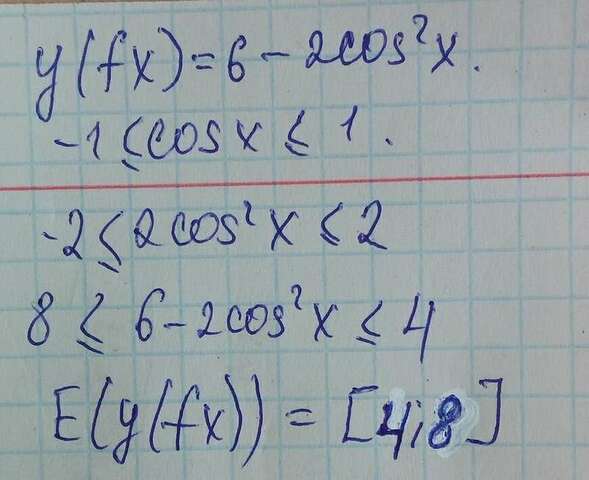 y(fx)=6-2cos²x.
-1≤cosx≤1.
-2≤2cos²x≤2
8≤6-2cos²x≤4
E(y(fx))=[4;8]